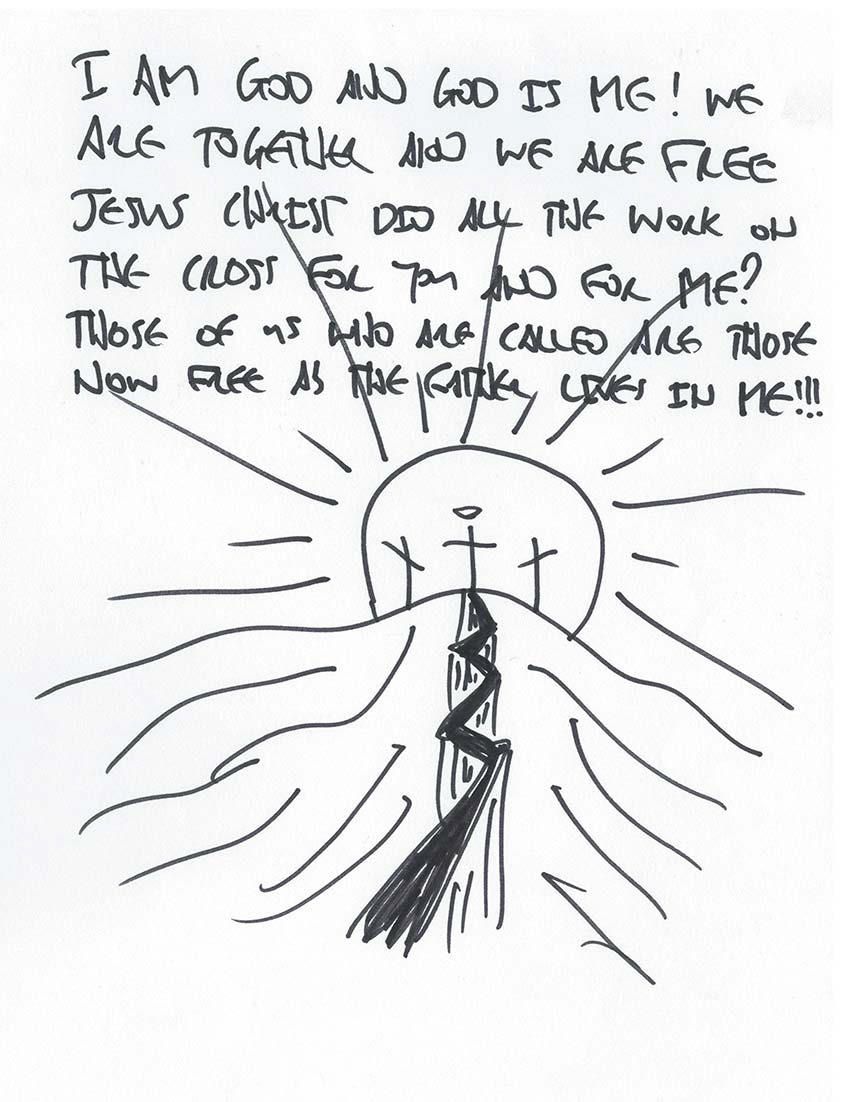 I AM GOD AND GOD IS ME! WE
ARE TOGETHER AND WE ARE FREE
JESUS CHRIST DID ALL THE WORK ON
THE CROSS FOR YOU AND FOR ME?
THOSE OF US WHO ARE CALLED ARE THOSE
NOW FREE AS THE FATHER LIVES IN ME!!!